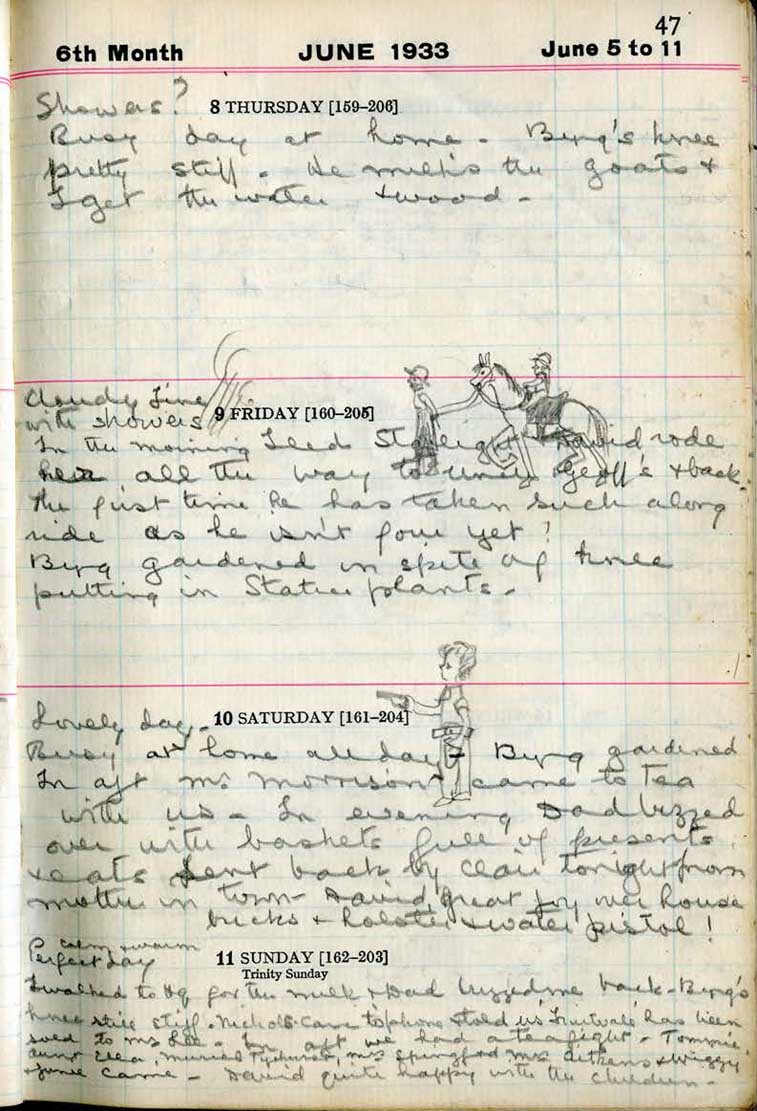 47
6th Month JUNE 1933 June 5 to 11
Showers? 8 THURSDAY [159-206]
Busy day at home - Byng's knee
pretty stiff. He milks the goats +
I get the water + wood -
Cloudy fine
with showers 9 FRIDAY [160-205]
In the morning I led Starlight David rode
her all the way to Uncle Geoff's + back.
The first time he has taken such a long
ride as he isn't four yet!
Byng gardened in spite of knee
putting in Statice plants -
Lovely day - 10 SATURDAY [161-204]
Busy at home all day - Byng gardened
In aft Mr Morrison came to Tea
with us - In evening Dad buzzed
over with baskets full of presents
+ eats sent back by Clair tonight from
mother in town - David great joy over house
bricks + holster + water pistol!
calm + warm
Perfect day 11 SUNDAY [162-203]
Trinity Sunday
I walked to Hq for the milk + Dad buzzed me back - Byng's
knee still stiff. Nichols came to phone + told us has been
sold to Mr Lee. In aft we had a tea fight - Tommie
Aunt Ella, Muriel, Mrs Springford Mrs Aitkens +
+ June came - David quite happy with the children -